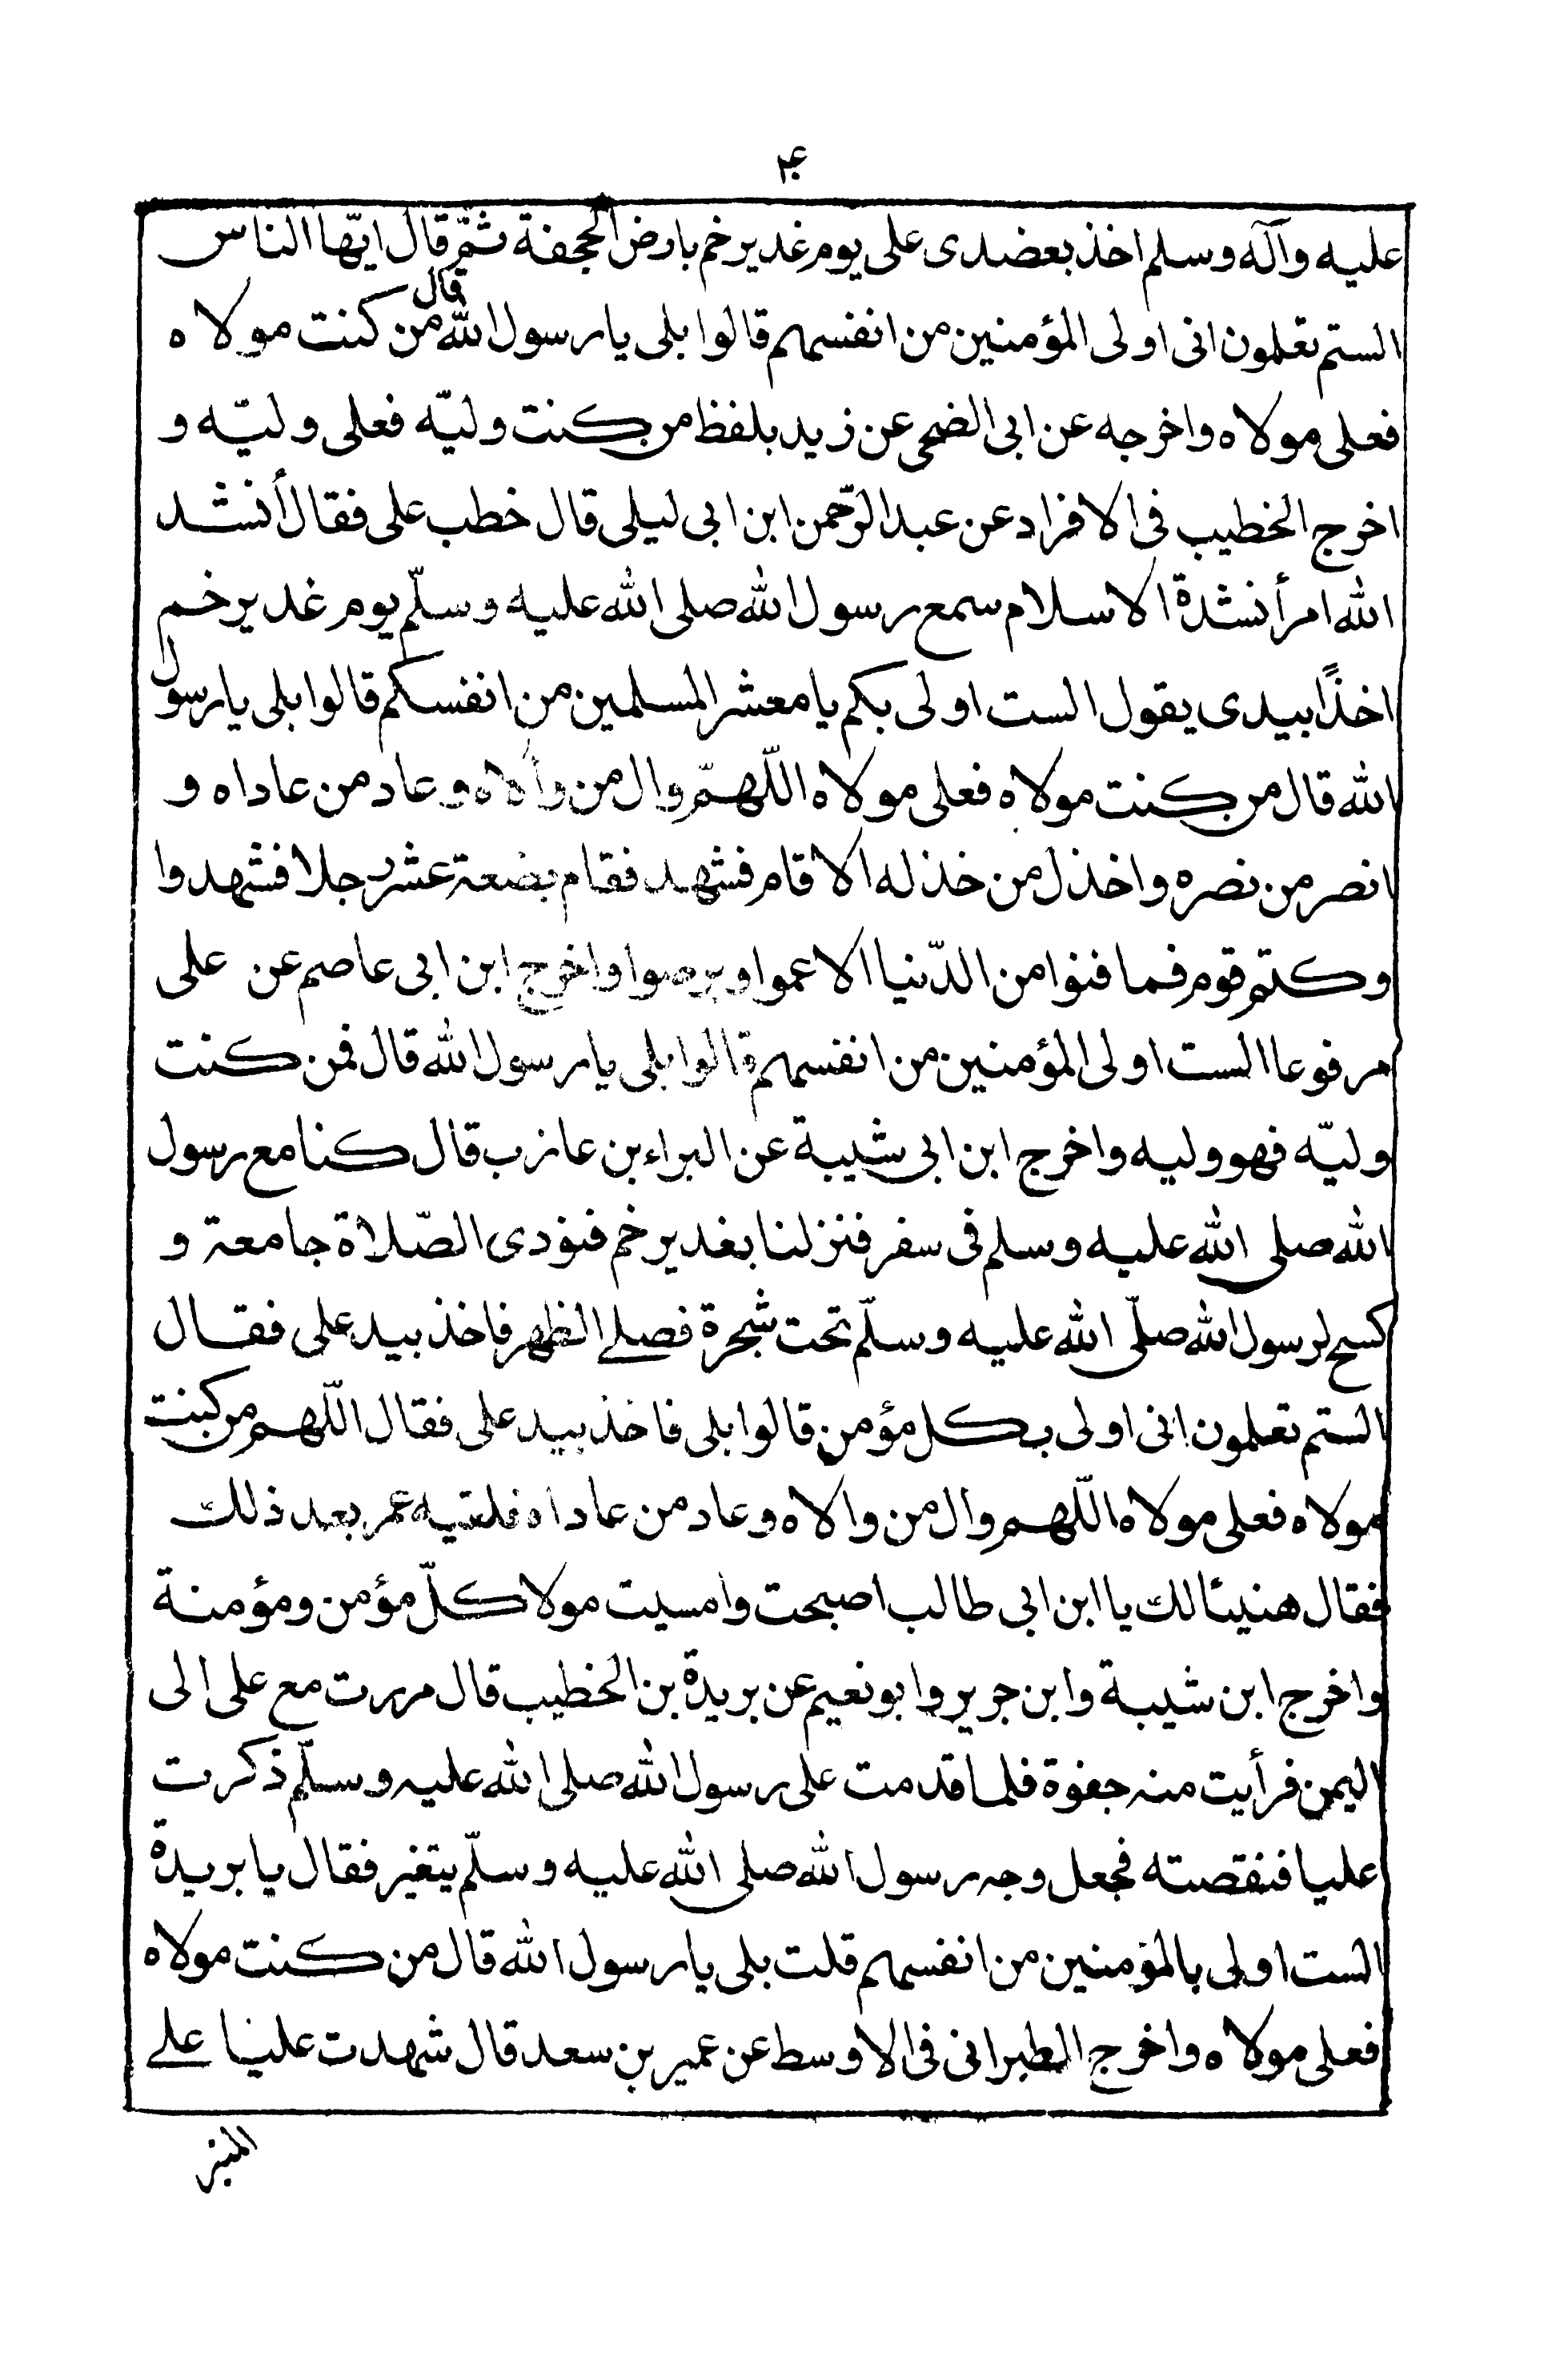 ۴
عليه وآله وسلم اخذ بعضدى على يوم غدير خم بارض الجحفة ثمّ قال ايّها الناس
الستم تعلمون انى اولى المؤمنين من انفسهم قالوا بلى يا رسول الله قال من كنت مولاه
فعلى مولاه واخرجه عن ابى الضحى عن زيد بلفظ من كنت وليّه فعلى وليّه و
اخرج الخطيب فى الافراد عن عبد الرّحمن ابن ابى ليلى قال خطب على فقال أنشد
الله امرأ نشدة الاسلام سمع رسول الله صلى الله عليه وسلّم يوم غدير خم
اخذًا بيدى يقول الست اولى بكم يا معشر المسلمين من انفسكم قالوا بلى يا رسول
الله قال من كنت مولاه فعلى مولاه اللّهمّ وال من والاه وعاد من عاداه و
انصر من نصره واخذل من خذله الا قام فشهد فقام بضعة عشر رجلا فشهدوا
وكتم قوم فما فنوا من الدّنيا الا عموا وبرصوا واخرج ابن ابى عاصم عن على
مرفوعا الست اولى المؤمنين من انفسهم قالوا بلى يا رسول الله قال فمن كنت
وليّه فهو وليه واخرج ابن ابى شيبة عن البراء بن عازب قال كنا مع رسول
الله صلى الله عليه وسلم فى سفر فنزلنا بغدير خم فنودى الصّلاة جامعة و
كسح لرسول الله صلّى الله عليه وسلّم تحت شجرة فصلے الظهر فاخذ بيد على فقال
الستم تعلمون انى اولى بكل مؤمن قالوا بلى فاخذ بيد على فقال اللّهم من كنت
مولاه فعلى مولاه اللّهم وال من والاه وعاد من عاداه فلقيه عمر بعد ذلك
فقال هنيئا لك يا ابن ابى طالب اصبحت وامسيت مولا كلّ مؤمن ومؤمنة
واخرج ابن شيبة وابن جرير وابو نعيم عن بريدة بن الخطيب قال مررت مع على الى
اليمن فرأيت منه جفوة فلما قدمت على رسول الله صلى الله عليه وسلّم ذكرت
عليا فنقصته فجعل وجه رسول الله صلى الله عليه وسلّم يتغير فقال يا بريدة
الست اولى بالمؤمنين من انفسهم قلت بلى يا رسول الله قال من كنت مولاه
فعلى مولاه واخرج الطبرانى فى الاوسط عن عمير بن سعد قال شهدت عليا علے
المنبر